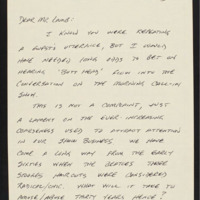 DEAR MR. LAMB:
I KNOW YOU WERE REPEATING
A GUEST'S UTTERANCE, BUT I WOULD
HAVE NEEDED LONG ODDS TO BET ON
HEARING "BUTT HEAD" FLOW INTO THE
CONVERSATION ON THE MORNING CALL-IN
SHOW.
THIS IS NOT A COMPLAINT, JUST
A LAMENT ON THE EVER INCREASING
COARSENESS USED TO ATTRACT ATTENTION
IN OUR SHOW BUSINESS. WE HAVE
COME A LONG WAY FROM THE EARLY
SIXTIES WHEN THE BEATLES THREE
HAIRCUTS WERE CONSIDERED
RADICAL/CHIC. WHAT WILL IT TAKE TO
AMUSE/AMAZE THIRTY YEARS HENCE?